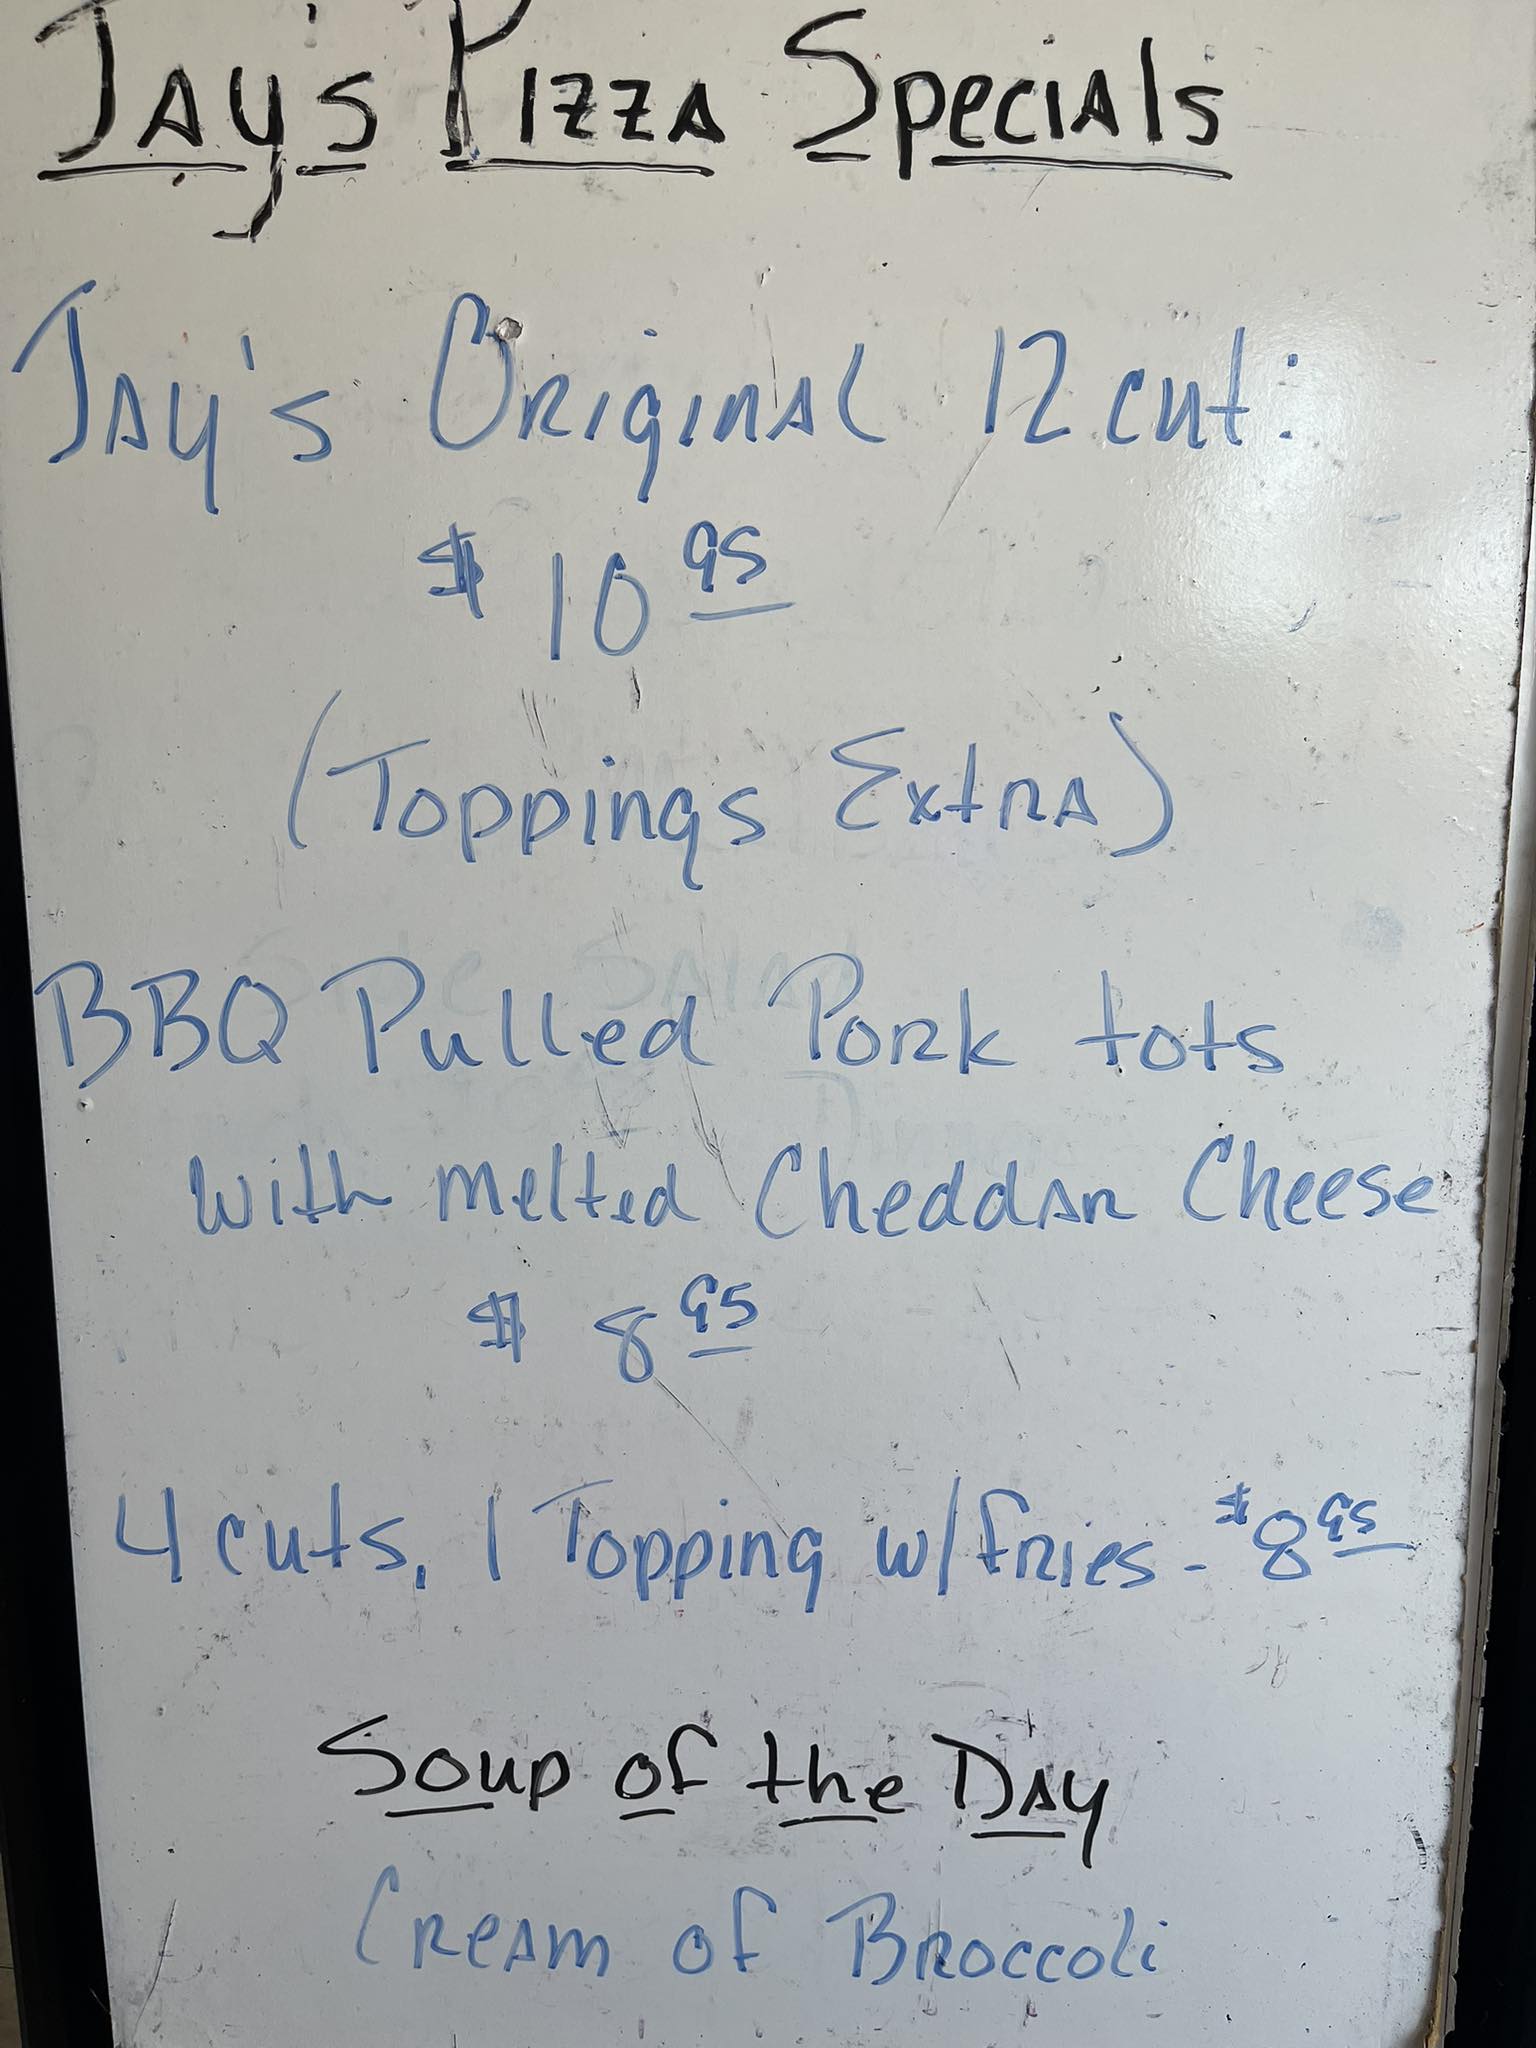 Jay's Pizza Specials
Jay's Original 12 cut:
$10 95
(Toppings Extra)
BBQ Pulled Pork tots
with melted Cheddar Cheese
$ 8 95
4 cuts, 1 Topping w/fries - $8 95
Soup of the Day
Cream of Broccoli